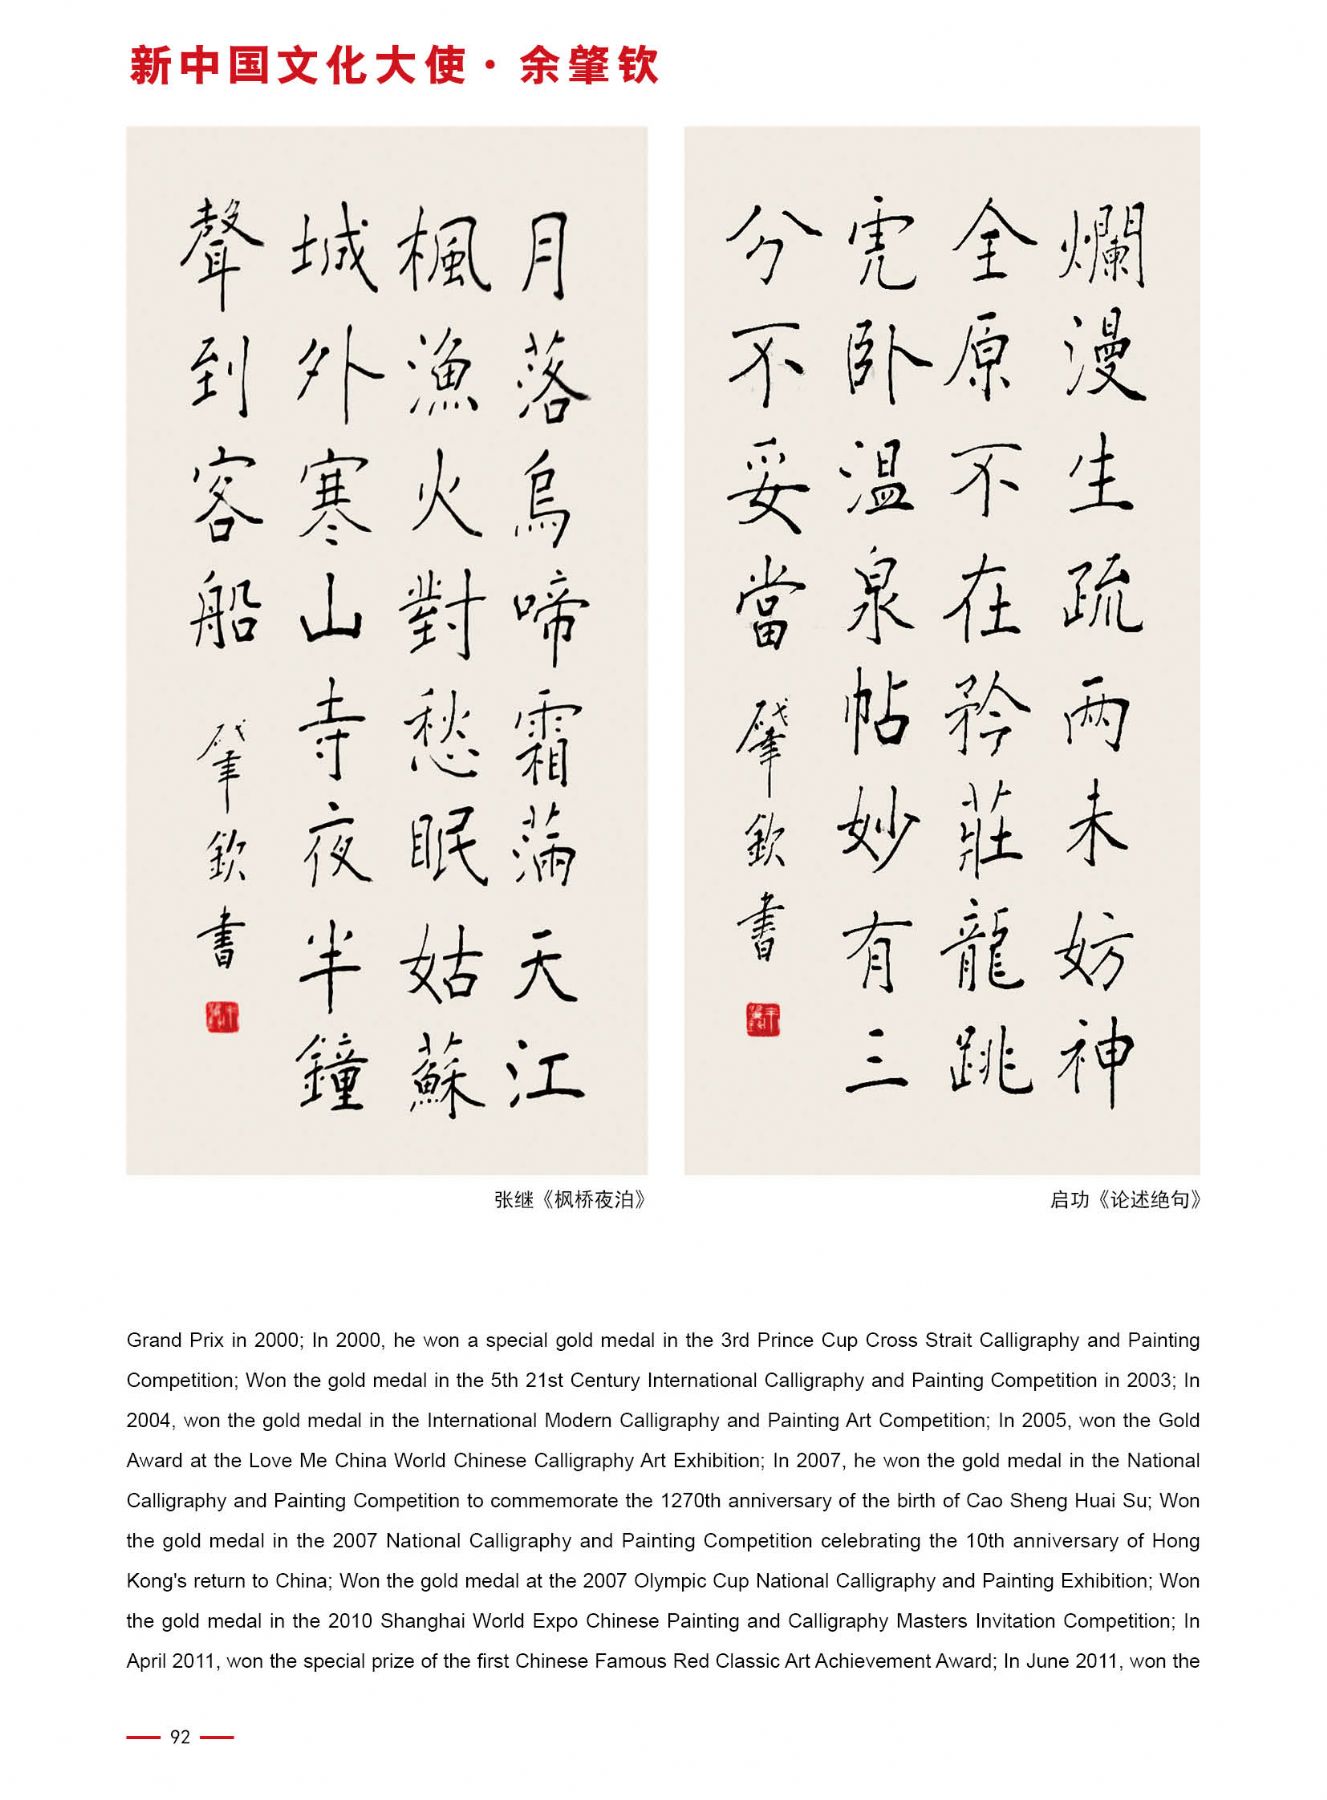 新中国文化大使·余肇钦
月落烏啼霜滿天江
楓漁火對愁眠姑蘇
城外寒山寺夜半鐘
聲到客船 肇欽書
张继《枫桥夜泊》
爛漫生疏两未妨神
全原不在矜莊龍跳
虎卧温泉帖妙有三
分不妥當 肇欽書
启功《论述绝句》
Grand Prix in 2000; In 2000, he won a special gold medal in the 3rd Prince Cup Cross Strait Calligraphy and Painting
Competition; Won the gold medal in the 5th 21st Century International Calligraphy and Painting Competition in 2003; In
2004, won the gold medal in the International Modern Calligraphy and Painting Art Competition; In 2005, won the Gold
Award at the Love Me China World Chinese Calligraphy Art Exhibition; In 2007, he won the gold medal in the National
Calligraphy and Painting Competition to commemorate the 1270th anniversary of the birth of Cao Sheng Huai Su; Won
the gold medal in the 2007 National Calligraphy and Painting Competition celebrating the 10th anniversary of Hong
Kong's return to China; Won the gold medal at the 2007 Olympic Cup National Calligraphy and Painting Exhibition; Won
the gold medal in the 2010 Shanghai World Expo Chinese Painting and Calligraphy Masters Invitation Competition; In
April 2011, won the special prize of the first Chinese Famous Red Classic Art Achievement Award; In June 2011, won the
92